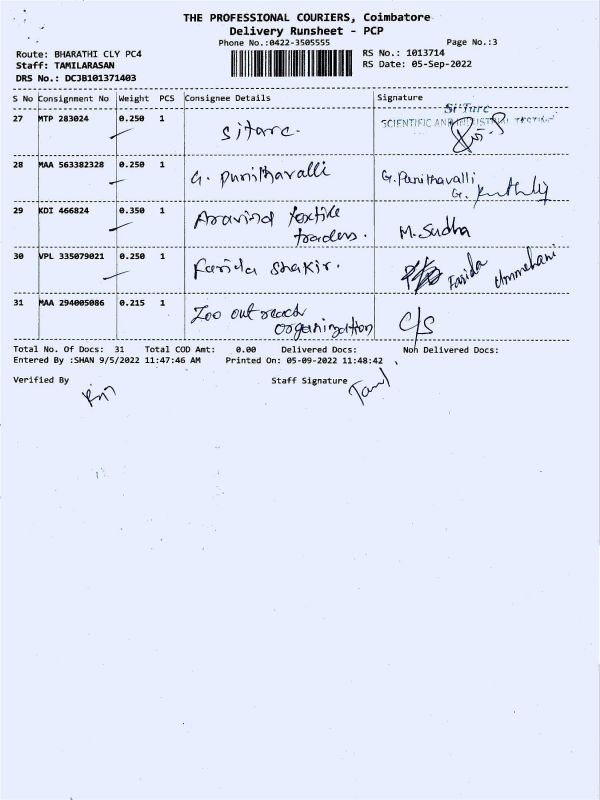 THE PROFESSIONAL COURIERS, Coimbatore
Delivery Runsheet - PCP
Phone No.:0422-3505555 Page No.:3
Route: BHARATHI CLY PC4 RS No.: 1013714
Staff: TAMILARASAN RS Date: 05-Sep-2022
DRS No.: DCJB101371403
S No Consignment No Weight PCS Consignee Details Signature
Si'Tarc
SCIENTIFIC AND INDUSTRIAL TESTING
27 MTP 283024 0.250 1 sitarc.
28 MAA 563382328 0.250 1 G. Punithavalli G. Punithavalli
G.
29 KDI 466824 0.350 1 Aravind textile
traders. M. Sudha
30 VPL 335079021 0.250 1 Farida shakir. Farida Ummehani
31 MAA 294005086 0.215 1 Zoo outreach
organization C/S
Total No. Of Docs: 31 Total COD Amt: 0.00 Delivered Docs: Non Delivered Docs:
Entered By :SHAN 9/5/2022 11:47:46 AM Printed On: 05-09-2022 11:48:42
Verified By Staff Signature Tamil